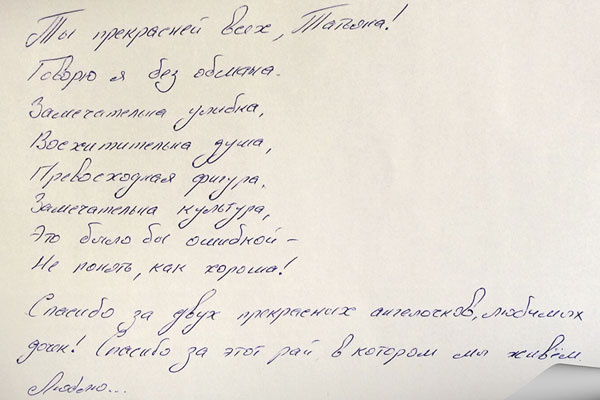 Ты прекрасней всех, Татьяна!
Говорю я без обмана.
Замечательна улыбка,
Восхитительна душа,
Превосходная фигура,
Замечательна культура,
Это было бы ошибкой –
Не понять, как хороша!
Спасибо за двух прекрасных ангелочков, любимых
дочк! Спасибо за этот рай, в котором мы живём.
Люблю...